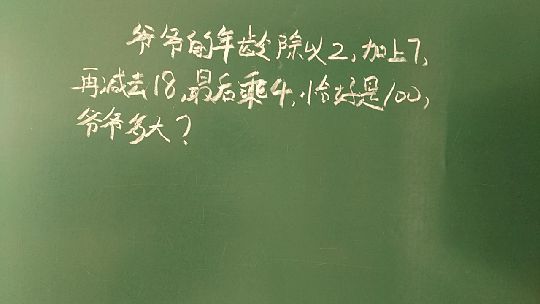 爷爷的年龄除以2,加上7,
再减去18,最后乘4,恰好是100,
爷爷多大?